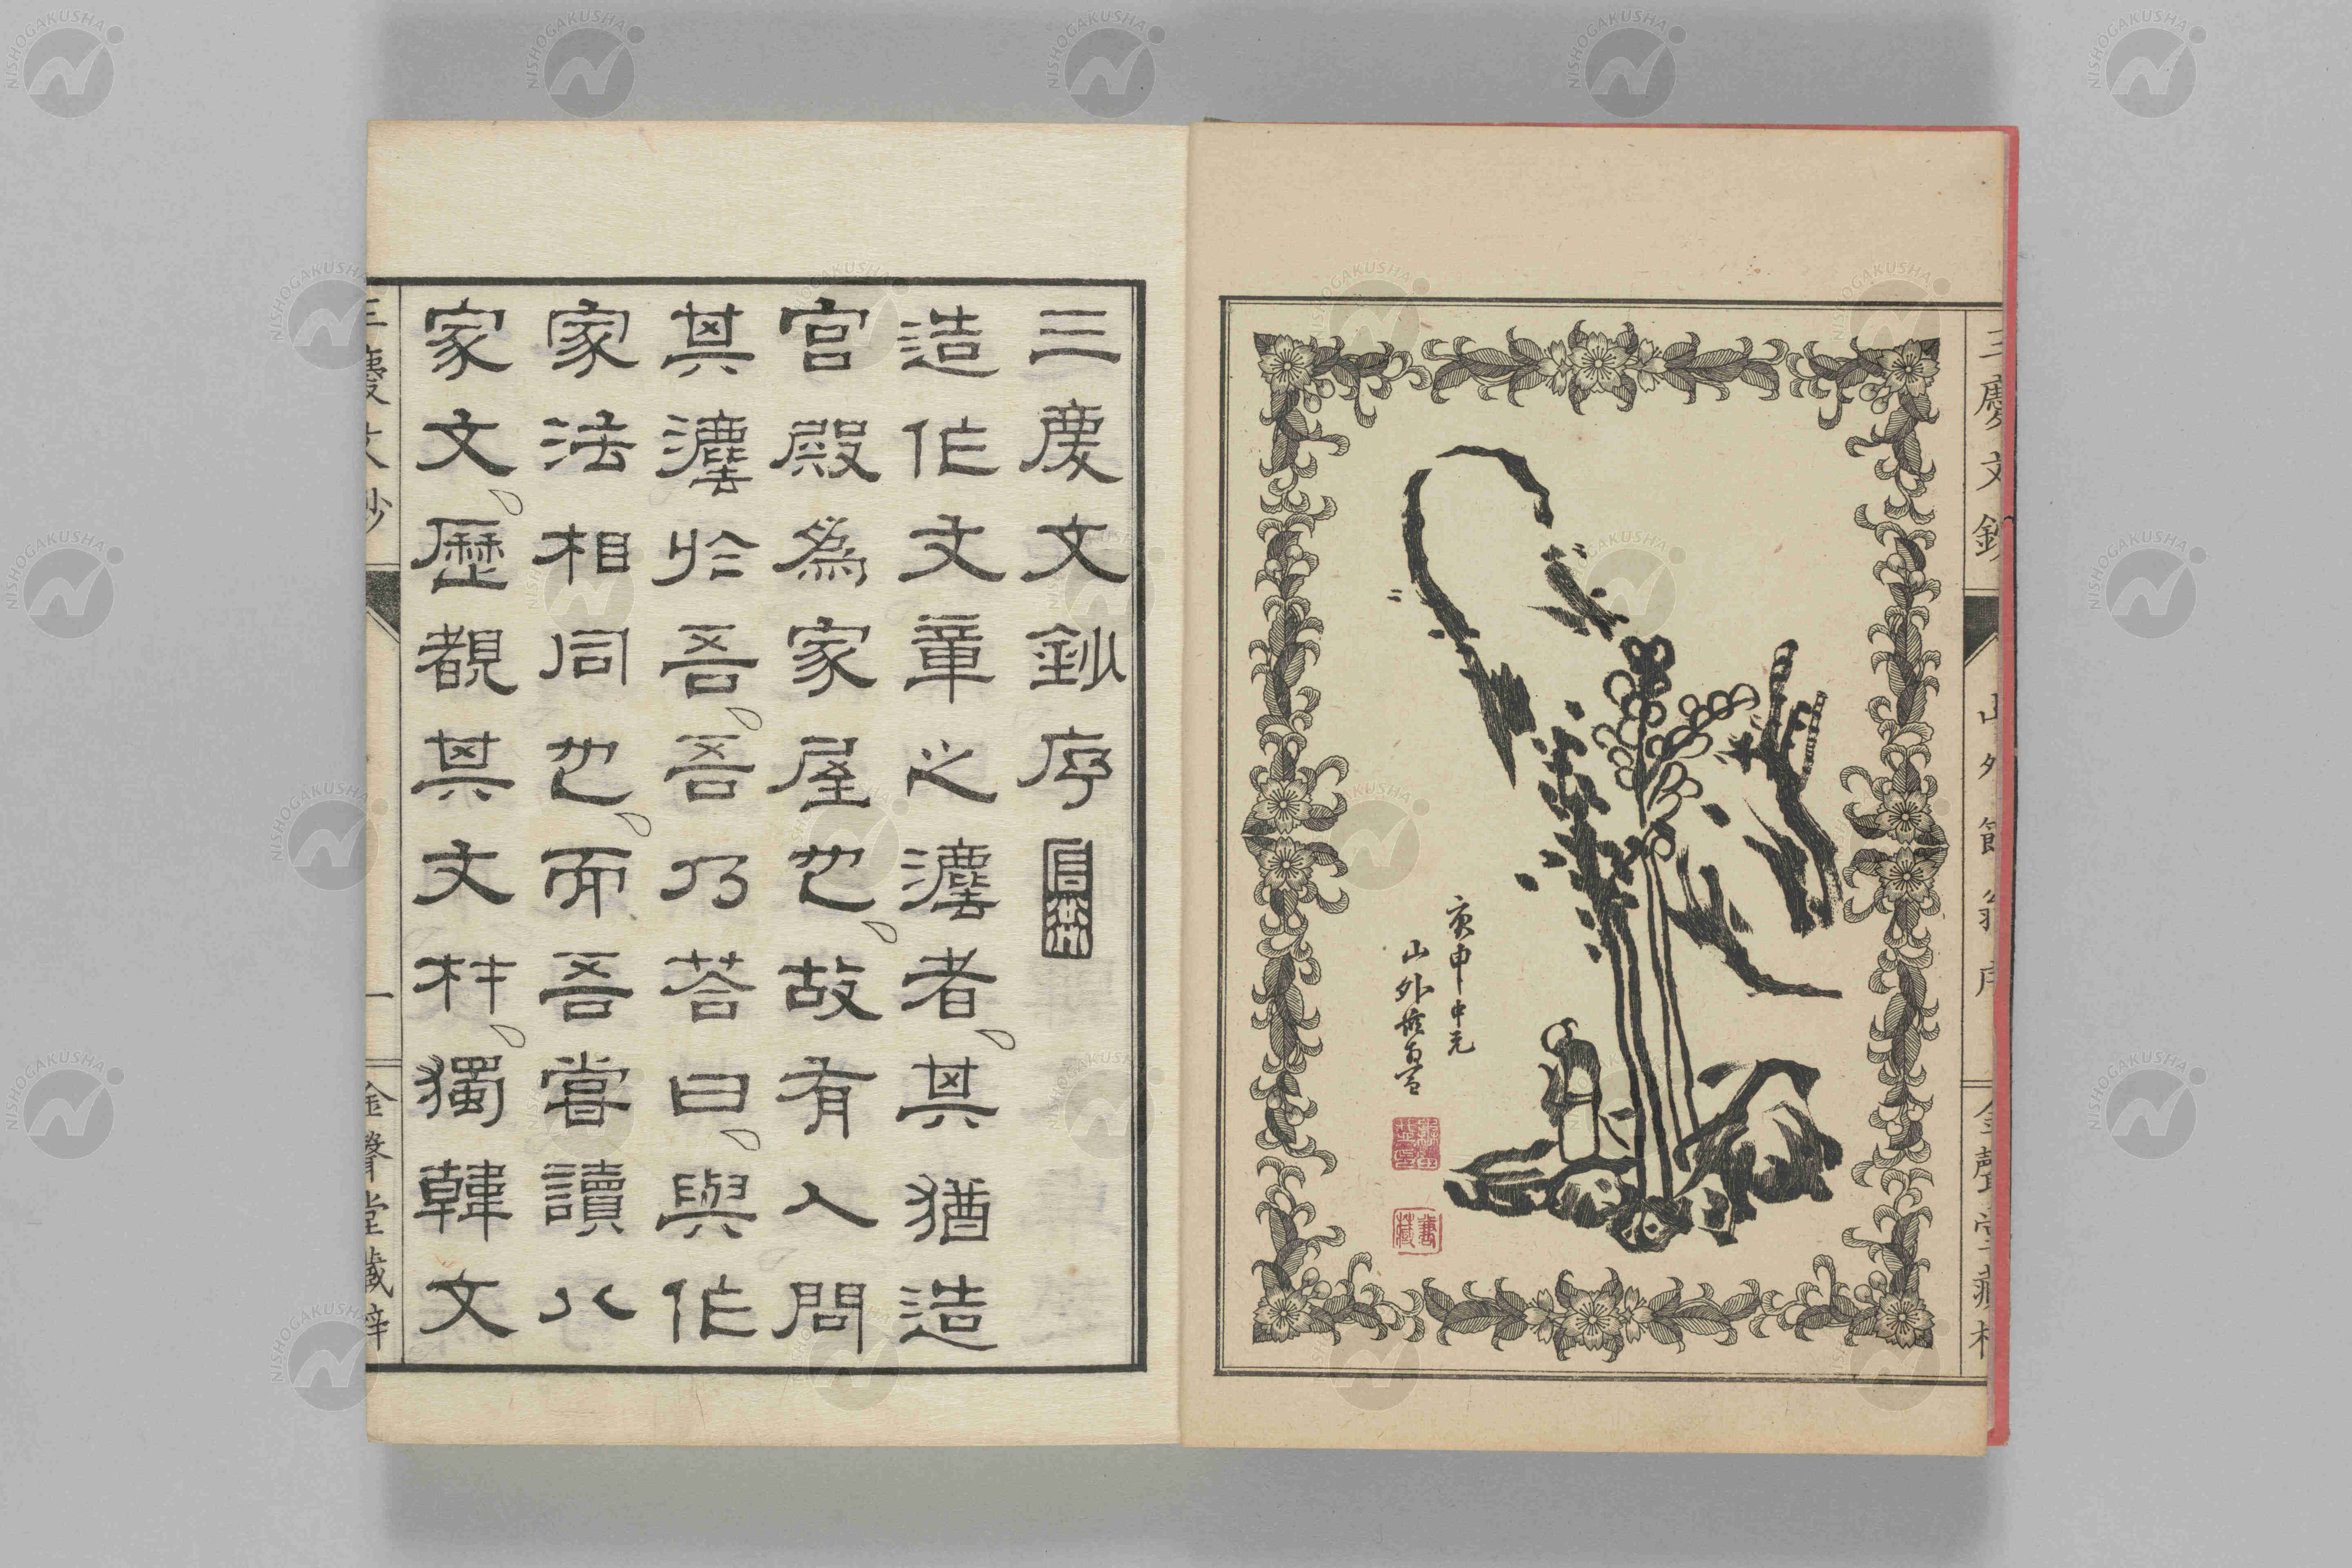 三慶文鈔
山外
序
金聲堂藏
庚申中元
山外
三慶文鈔序
造作文章之灋者、其猶造
宮殿為家屋也、故有人問
其灋於吾、吾乃荅曰、與作
家法相同也、而吾嘗讀八
家文、歷覩其文材、獨韓文
三慶文鈔
一
金聲堂藏梓
NISHOGAKUSHA